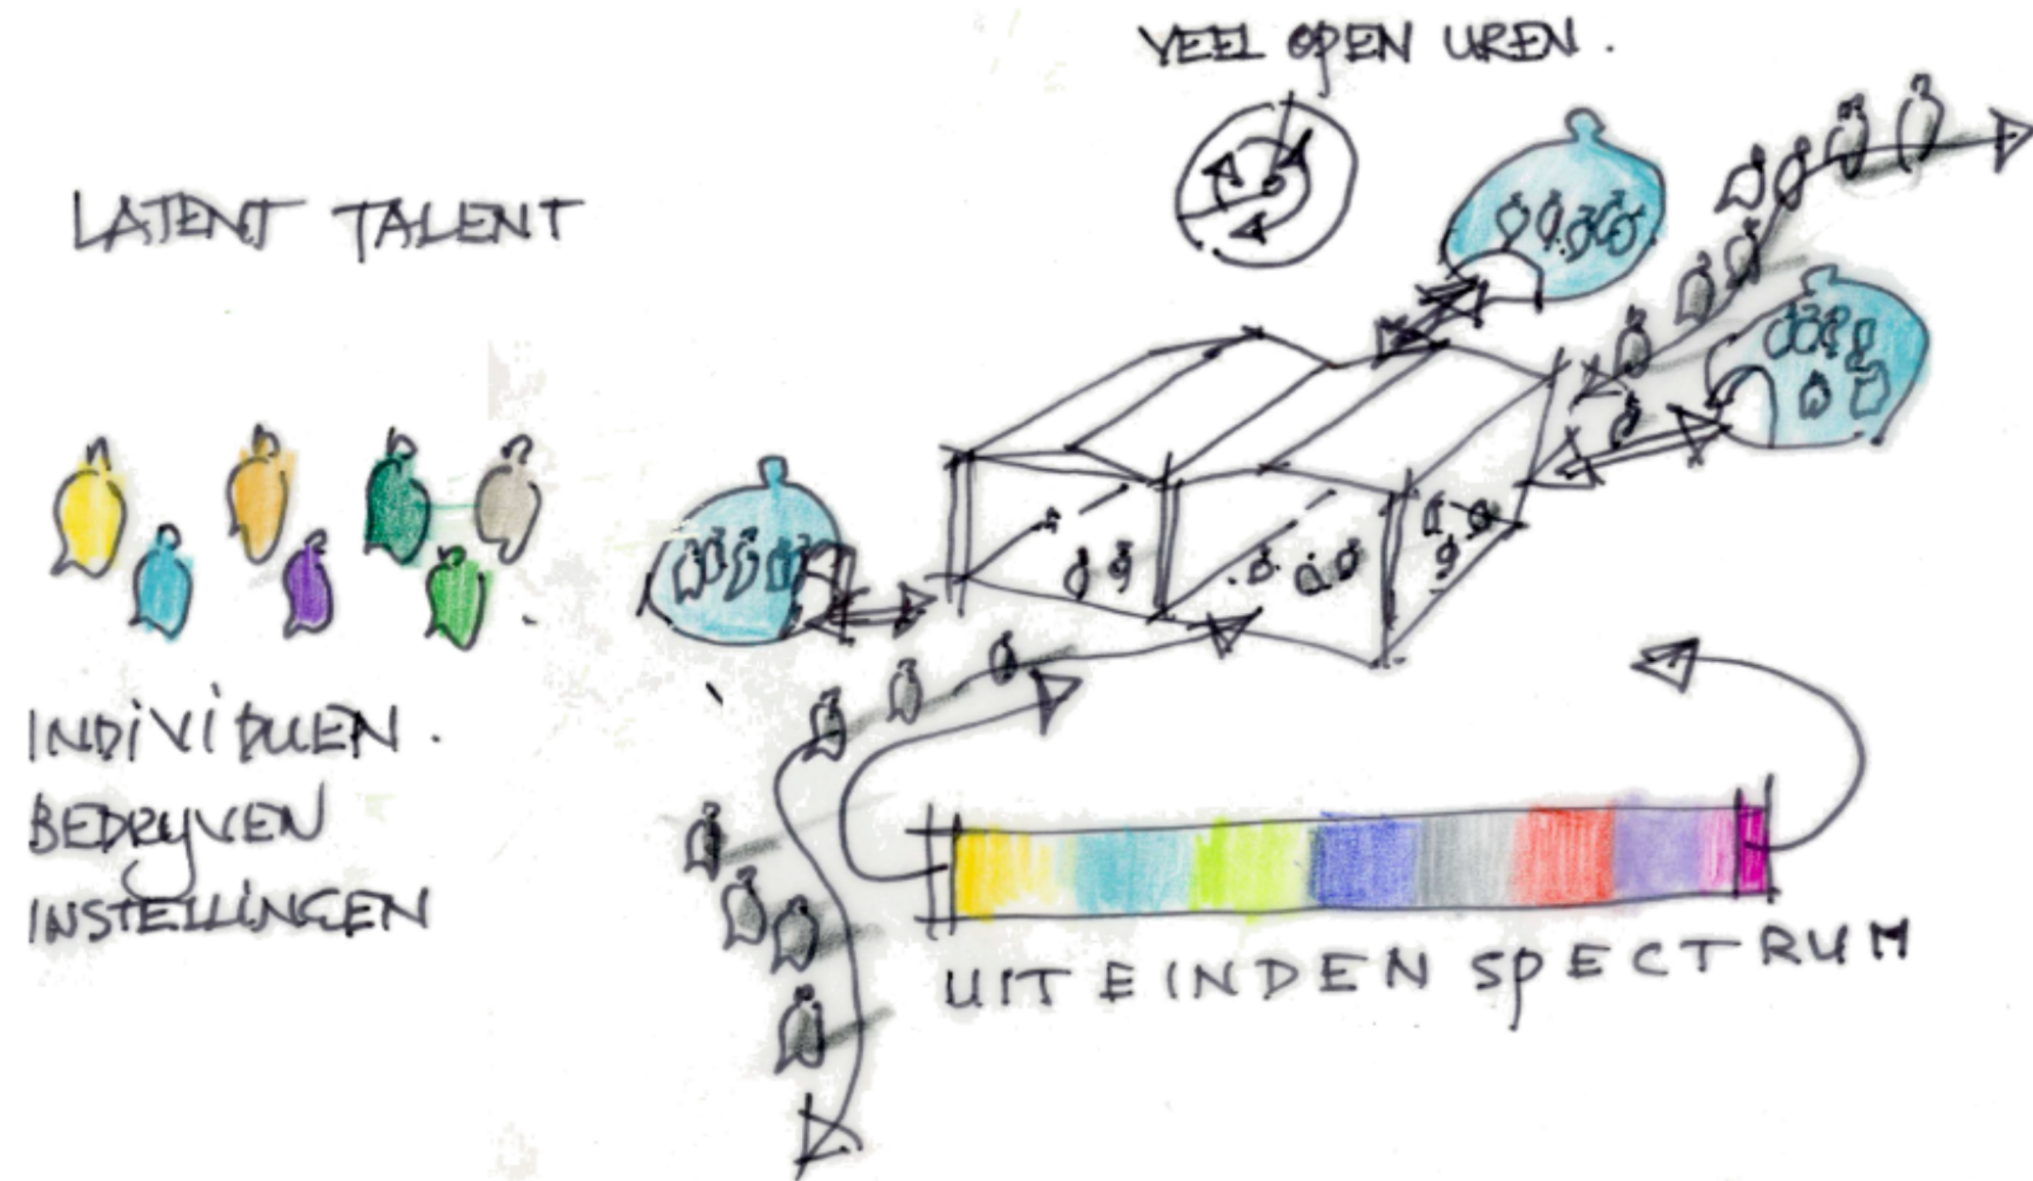 VEEL OPEN UREN.
LATENT TALENT
INDIVIDUEN.
BEDRYVEN
INSTELLINGEN
UITEINDEN SPECTRUM